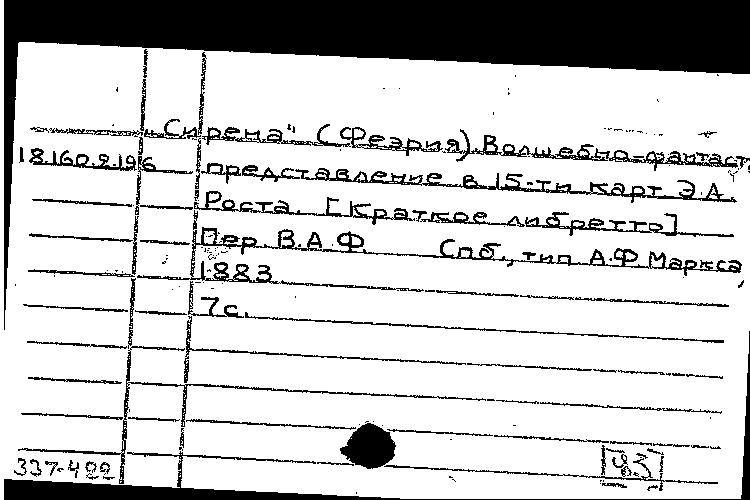 „Сирена" (Феэрия). Волшебно-фантаст.
18.160.2.196
представление в 15-ти карт. Э.А.
Роста. [Краткое либретто]
Пер. В.А.Ф. Спб., тип. А.Ф.Маркса,
1883.
7с.
337-422